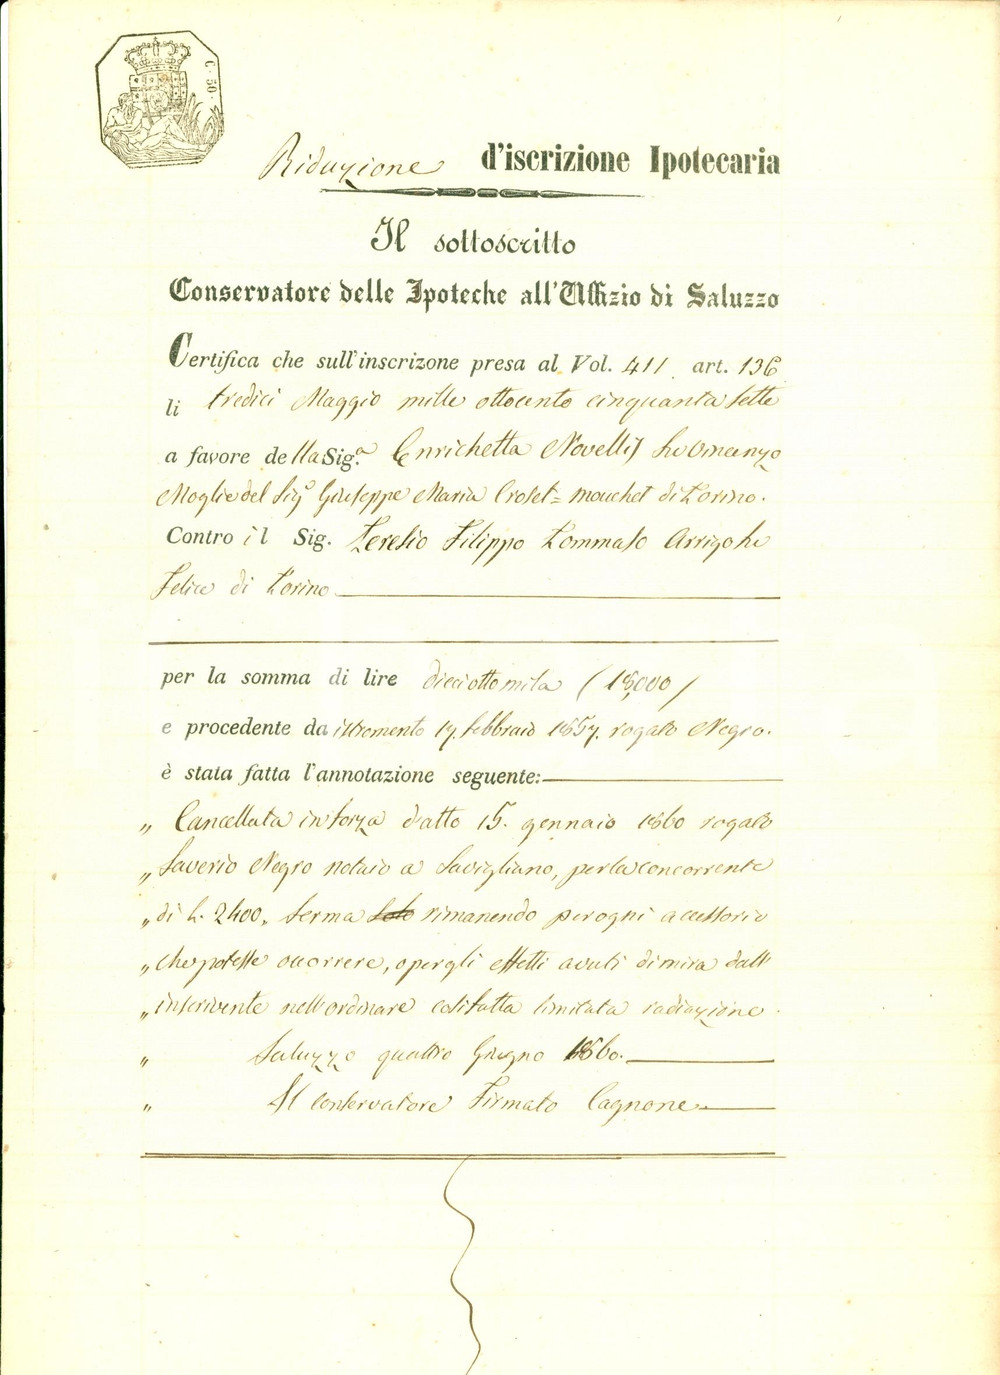 C. 50.
Riduzione d'iscrizione Ipotecaria
Il sottoscritto
Conservatore delle Ipoteche all'Uffizio di Saluzzo
Certifica che sull'inscrizone presa al Vol. 411. art. 136
li tredici Maggio mille ottocento cinquanta sette
a favore della Sig.a Enrichetta Novelli fu Vincenzo
Moglie del Sig.r Giuseppe Maria Crolet=Mouchet di Torino.
Contro il Sig. Teresio Filippo Tommaso Arrigo fu
Felice di Torino
per la somma di lire dieciotto mila (18,000)
e procedente da istromento 17. febbraio 1857. rogato Negro.
è stata fatta l'annotazione seguente:
„ Cancellata in forza d'atto 15. gennaio 1860 rogato
„ Saverio Negro notaio a Savigliano, per la concorrente
„ di L. 2400. ferma rimanendo per ogni accessorio
„ che potesse occorrere, o per gli effetti avuti di mira dall'
„ inscrivente nell'ordinare cosifatta limitata radiazione.
„ Saluzzo quattro Giugno 1860.
„ Il Conservatore Firmato Cagnone